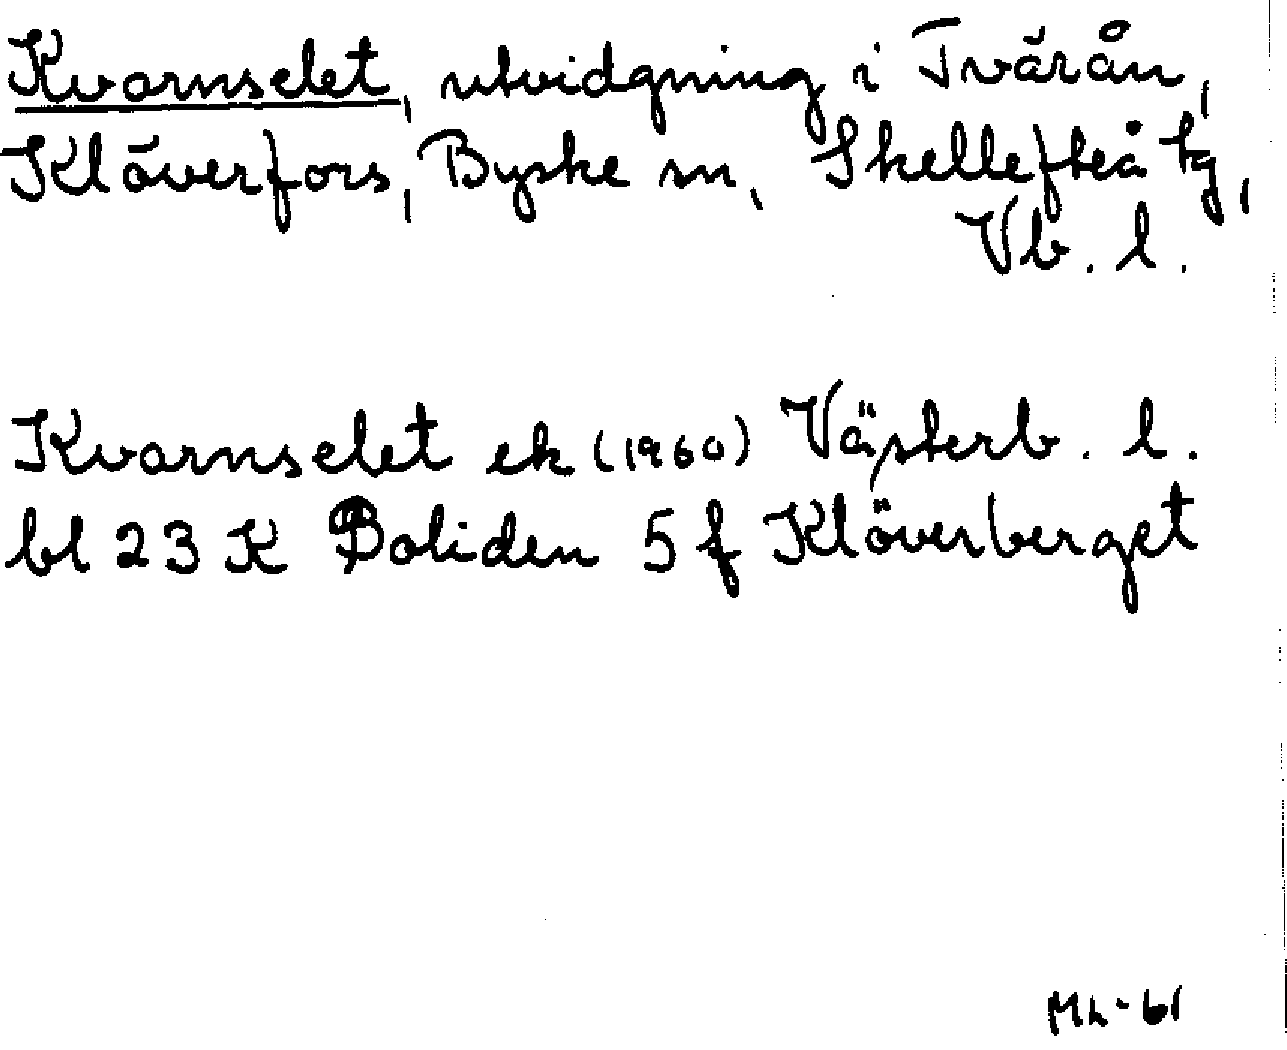 Kvarnselet, utvidgning i Tvärån,
Klöverfors, Byske sn, Skellefteå tg,
Vb. l.
Kvarnselet ek (1960) Västerb. l.
bl 23 K Boliden 5 f Klöverberget